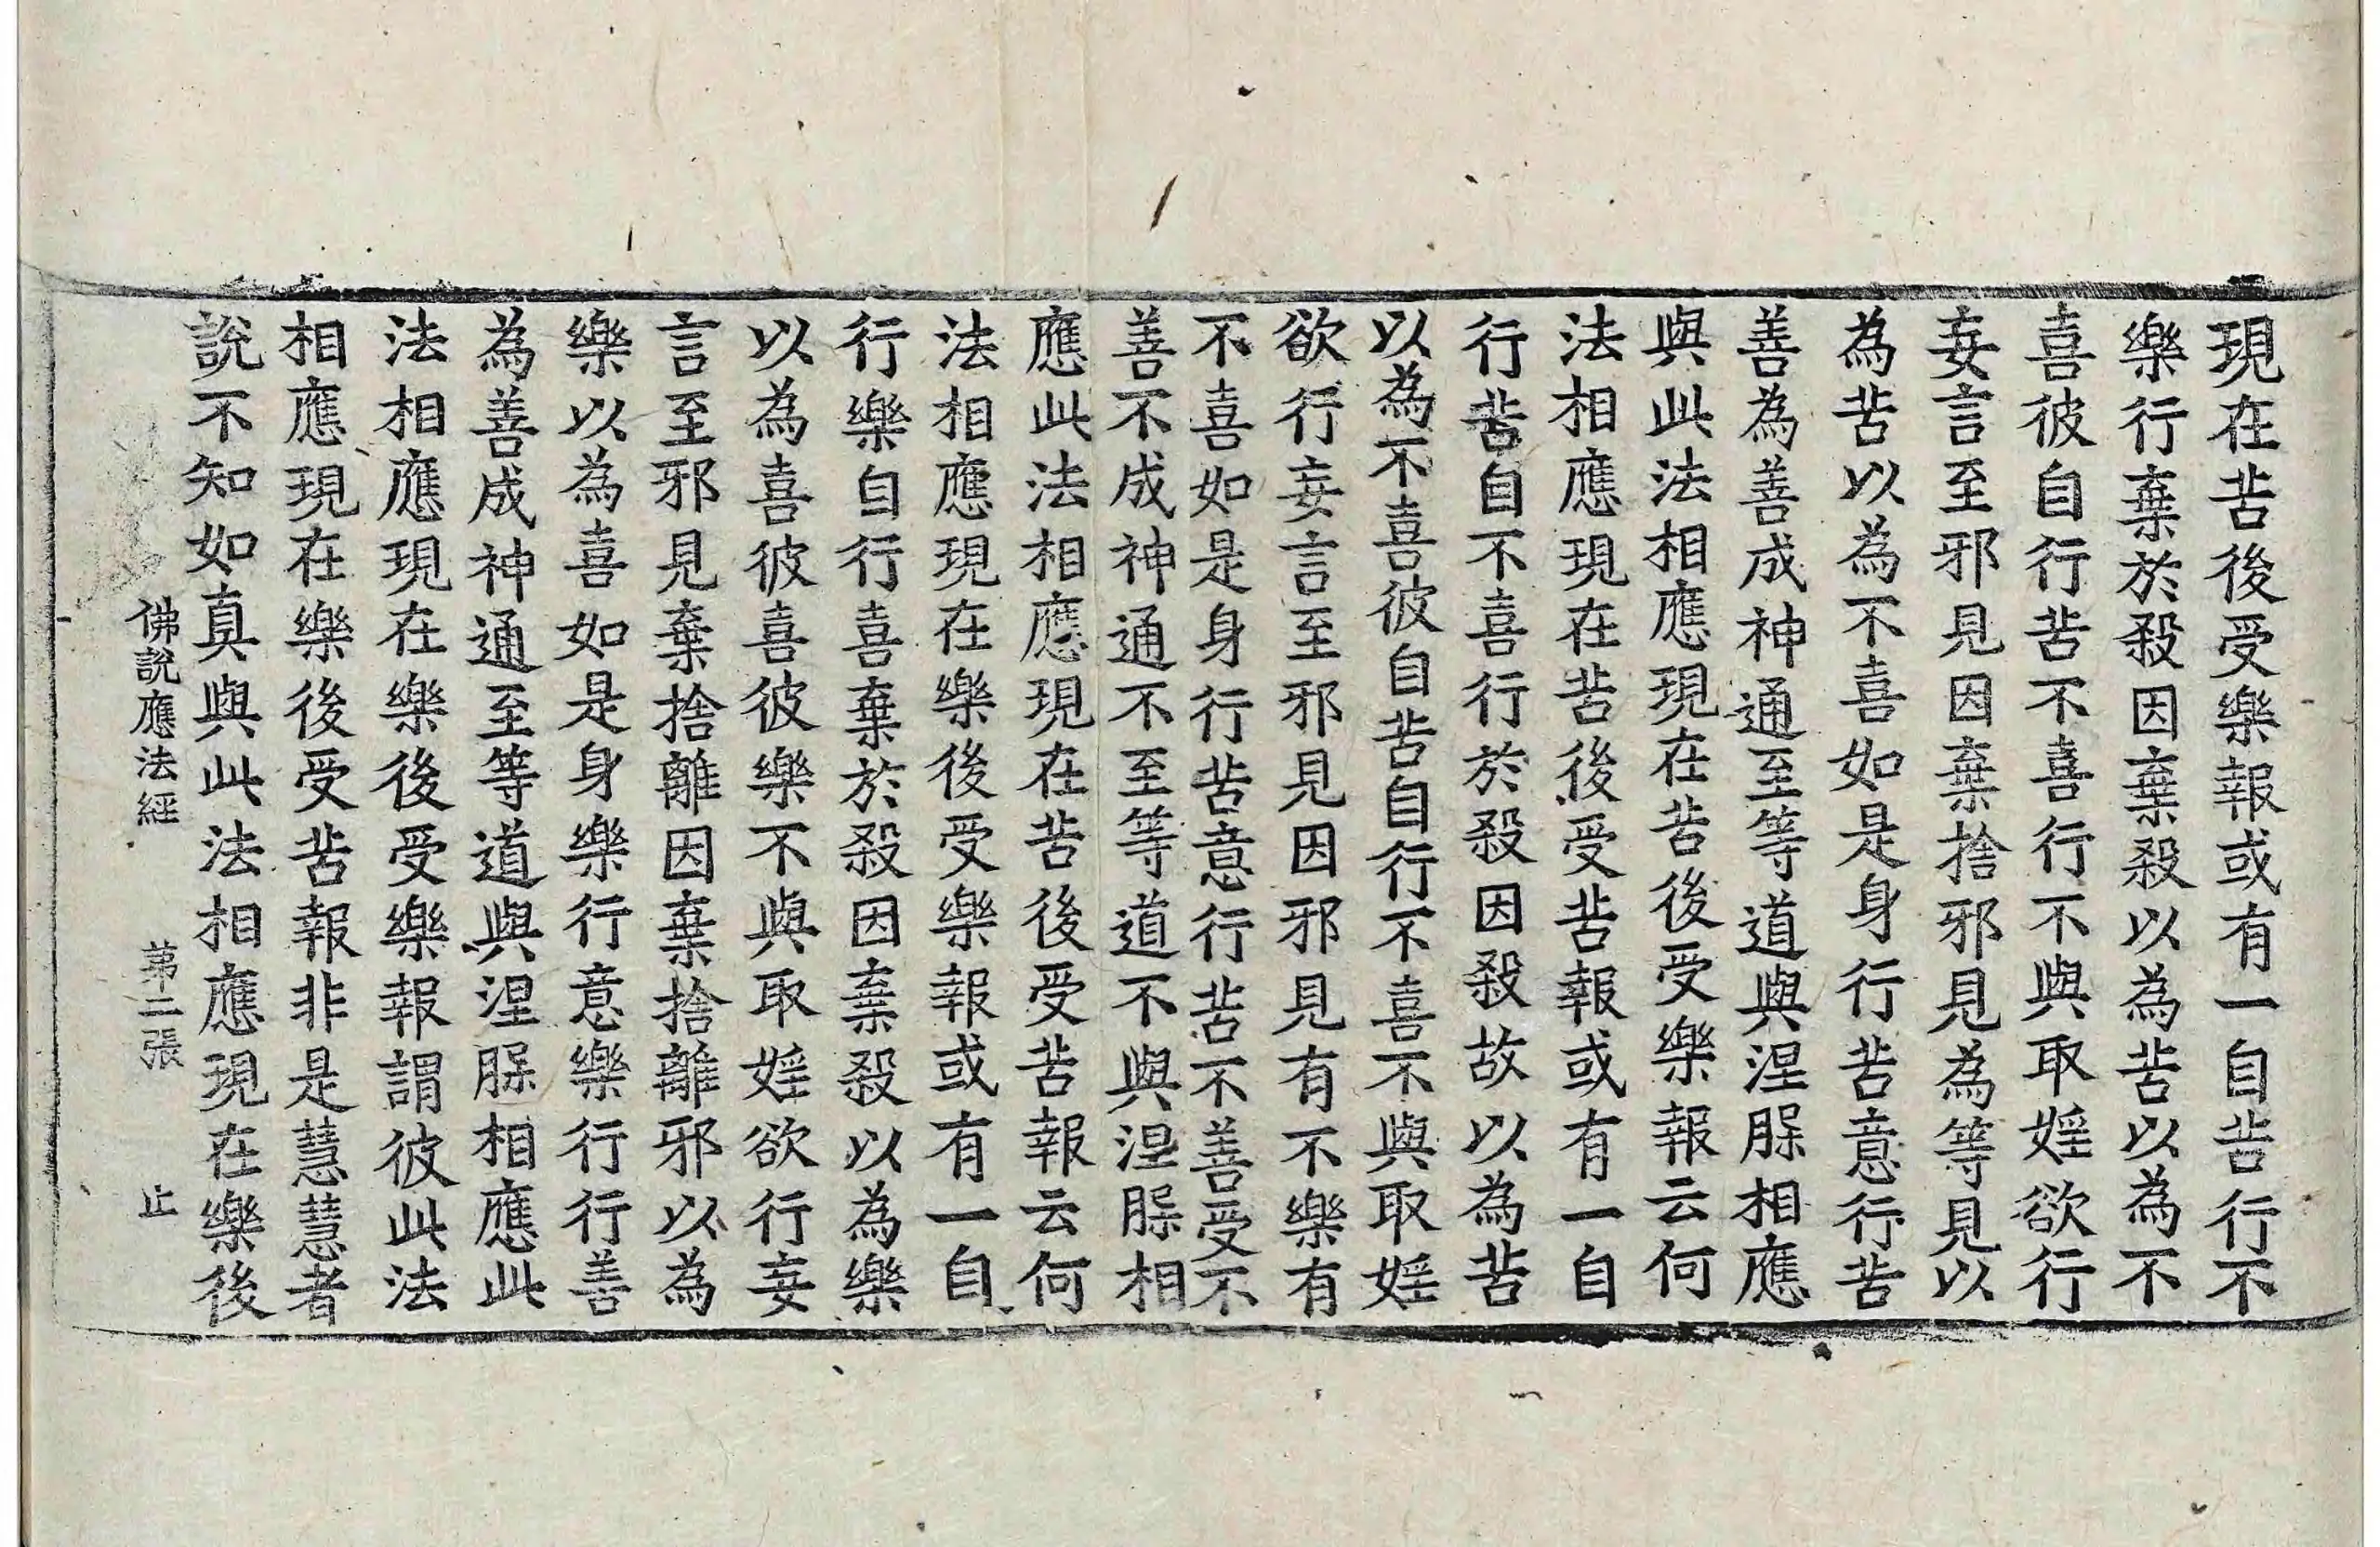 現在苦後受樂報或有一自苦行不
樂行棄於殺因棄殺以為苦以為不
喜彼自行苦不喜行不與取婬欲行
妄言至邪見因棄捨邪見為等見以
為苦以為不喜如是身行苦意行苦
善為善成神通至等道與涅脲相應
與此法相應現在苦後受樂報云何
法相應現在苦後受苦報或有一自
行苦自不喜行於殺因殺故以為苦
以為不喜彼自苦自行不喜不與取婬
欲行妄言至邪見因邪見有不樂有
不喜如是身行苦意行苦不善受不
善不成神通不至等道不與涅脲相
應此法相應現在苦後受苦報云何
法相應現在樂後受樂報或有一自
行樂自行喜棄於殺因棄殺以為樂
以為喜彼喜彼樂不與取婬欲行妄
言至邪見棄捨離因棄捨離邪以為
樂以為喜如是身樂行意樂行行善
為善成神通至等道與涅脲相應此
法相應現在樂後受樂報謂彼此法
相應現在樂後受苦報非是慧慧者
說不知如真與此法相應現在樂後
佛說應法經 苐二張 止